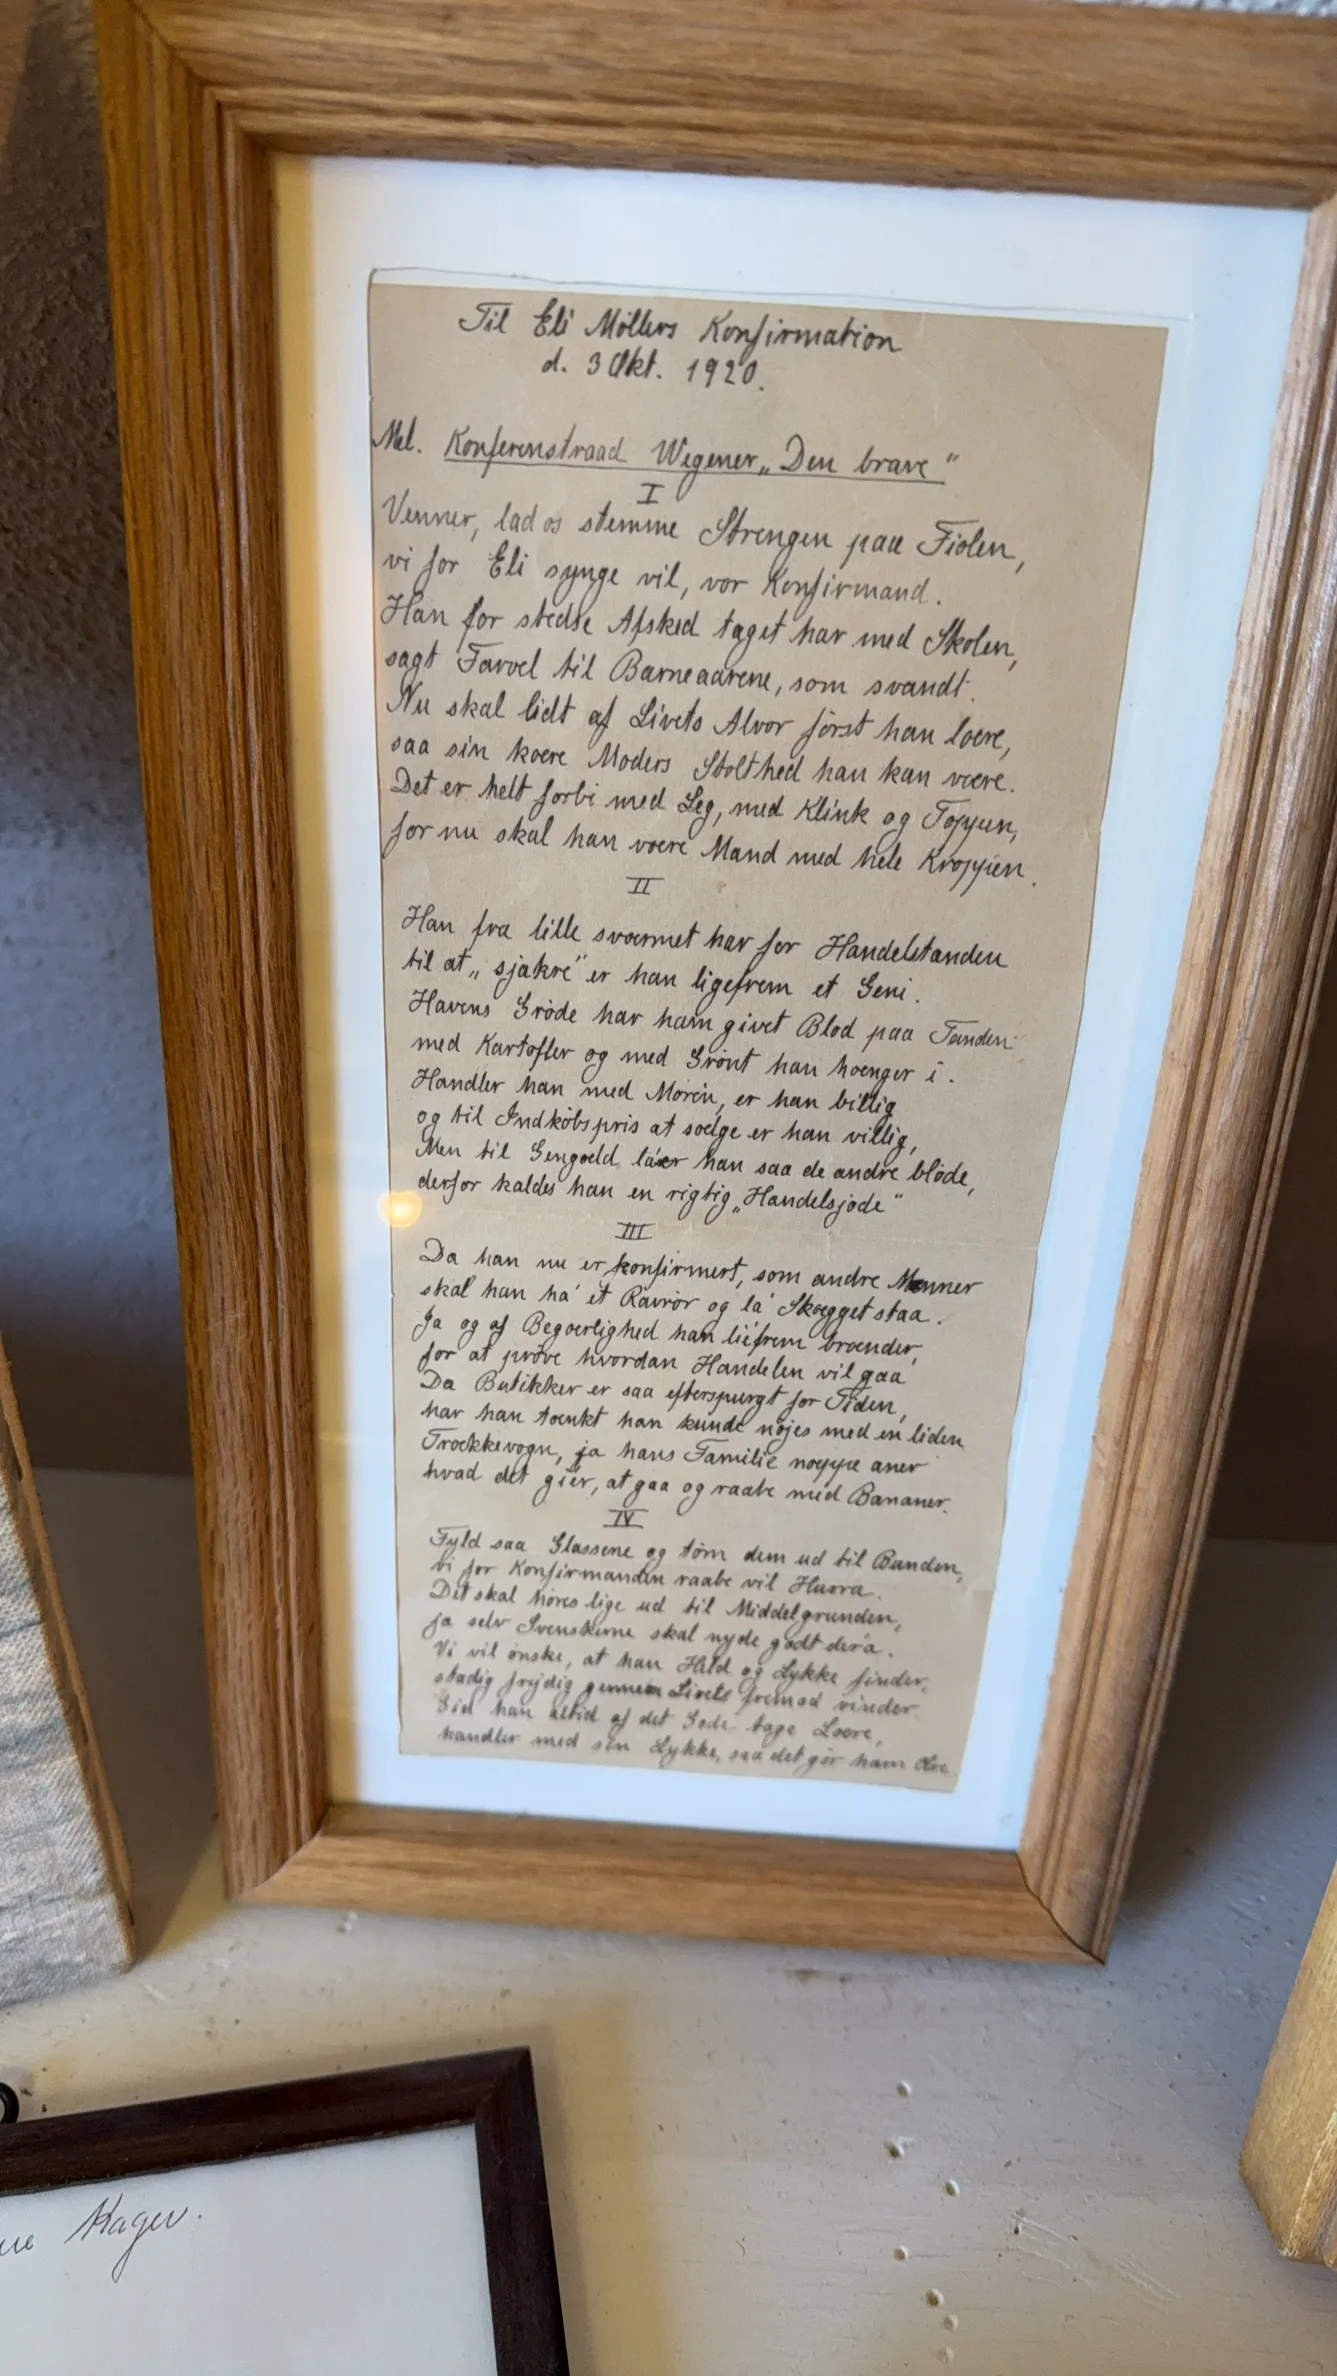 Til Eli Möllers Konfirmation
d. 3 Okt. 1920.
Mel. Konferenstraad Wegener „Den brave"
I
Venner, lad os stemme Strengen paa Fiolen,
vi for Eli synge vil, vor Konfirmand.
Han for stedse Afsked taget har med Skolen,
sagt Farvel til Barneaarene, som svandt.
Nu skal lidt af Livets Alvor först han lære,
saa sin kære Moders Stolthed han kan være.
Det er helt forbi med Leg, med Klink og Toppen,
for nu skal han være Mand med hele Kroppen.
II
Han fra lille sværmet har for Handelstanden
til at „sjakre" er han ligefrem et Geni.
Havens Gröde har ham givet Blod paa Tanden
med Kartofler og med Grönt han hænger i.
Handler han med Moren, er han billig
og til Indköbspris at sælge er han villig,
Men til Gengæld laer han saa de andre blöde,
derfor kaldes han en rigtig „Handelsjöde"
III
Da han nu er konfirmert, som andre Mænner
skal han ha' et Ravrör og la' Skægget staa.
Ja og af Begærlighed han lie'frem brænder,
for at pröve hvordan Handelen vil gaa
Da Butikker er saa efterspurgt for Tiden,
har han tænkt han kunde nöjes med en liden
Trækkevogn, ja hans Familie næppe aner
hvad det gi'er, at gaa og raabe med Bananer.
IV
Fyld saa Glassene og töm dem ud til Bunden,
vi for Konfirmanden raabe vil Hurra.
Det skal höres lige ud til Middelgrunden,
ja selv Svenskerne skal nyde godt dera.
Vi vil önske, at han Held og Lykke finder,
stadig frejdig gennem Livets fremad vinder.
Gid han altid af det Gode tage Lære,
handler med sin Lykke, saa det gör ham Ære
Kager.